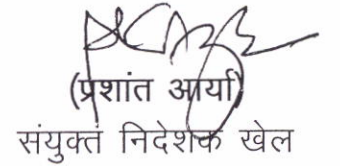 (प्रशांत आर्या)
संयुक्त निदेशक खेल